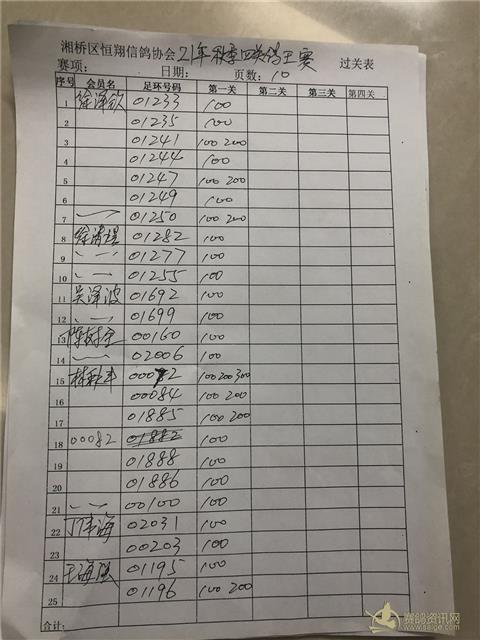 湘桥区恒翔信鸽协会21年秋季四关鸽王赛 过关表
赛项: 日期: 页数:10
序号 会员名 足环号码 第一关 第二关 第三关 第四关
1 徐泽欲 01233 100
2 01235 100
3 01241 100 200
4 01244 100
5 01247 100 200
6 01249 100
7 01250 100 200
8 01282 100
9 01277 100
10 01255 100
11 吴泽波 01692 100
12 01699 100
13 00160 100
14 02006 100
15 100 200 300
16 00084 100 200
17 01885 100 200
18 00082 01882 100
19 01888 100
20 01886 100
21 00100 100
22 丁伟海 02031 100
23 00203 100
24 01195 100
25 01196 100 200
合计:
赛鸽资讯网
www.saige.com